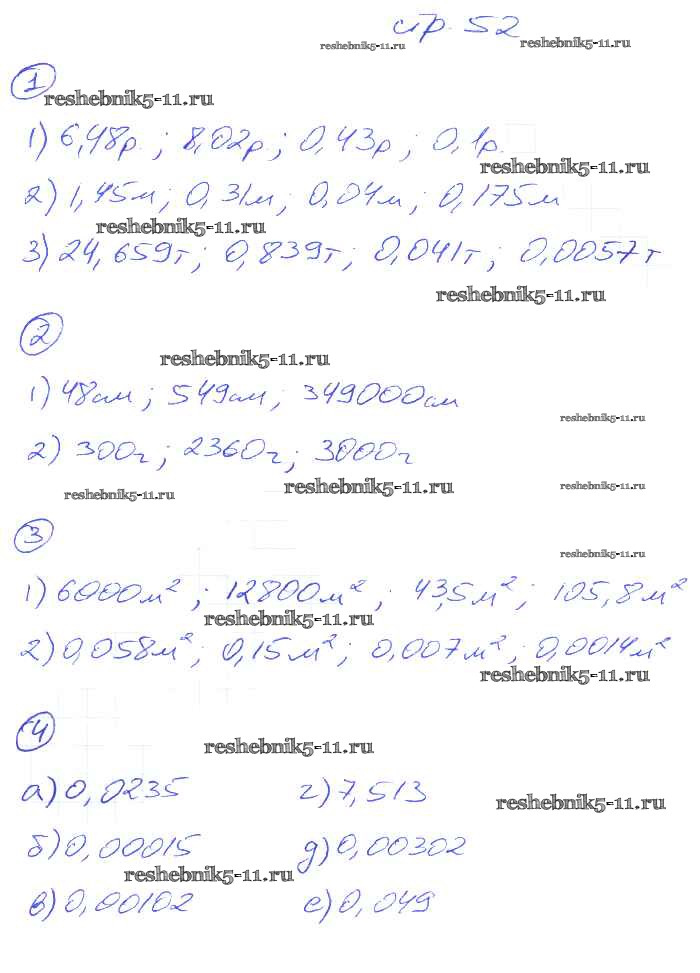 стр. 52
reshebnik5-11.ru reshebnik5-11.ru
1
reshebnik5-11.ru
1) 6,48р.; 8,02р.; 0,43р; 0,1р.
reshebnik5-11.ru
2) 1,45м; 0,31м; 0,04м; 0,175м
reshebnik5-11.ru
3) 24,659т; 0,839т; 0,041т; 0,0057т
reshebnik5-11.ru
2
reshebnik5-11.ru
1) 48см; 549см; 349000см
reshebnik5-11.ru
2) 300г; 2360г; 3000г
reshebnik5-11.ru reshebnik5-11.ru reshebnik5-11.ru
3
reshebnik5-11.ru
1) 6000м²; 12800м²; 43,5м²; 105,8м²
reshebnik5-11.ru
2) 0,058м²; 0,15м²; 0,007м²; 0,0014м²
reshebnik5-11.ru
4
reshebnik5-11.ru
а) 0,0235 г) 7,513
reshebnik5-11.ru
б) 0,00015 д) 0,00302
reshebnik5-11.ru
в) 0,00102 е) 0,049